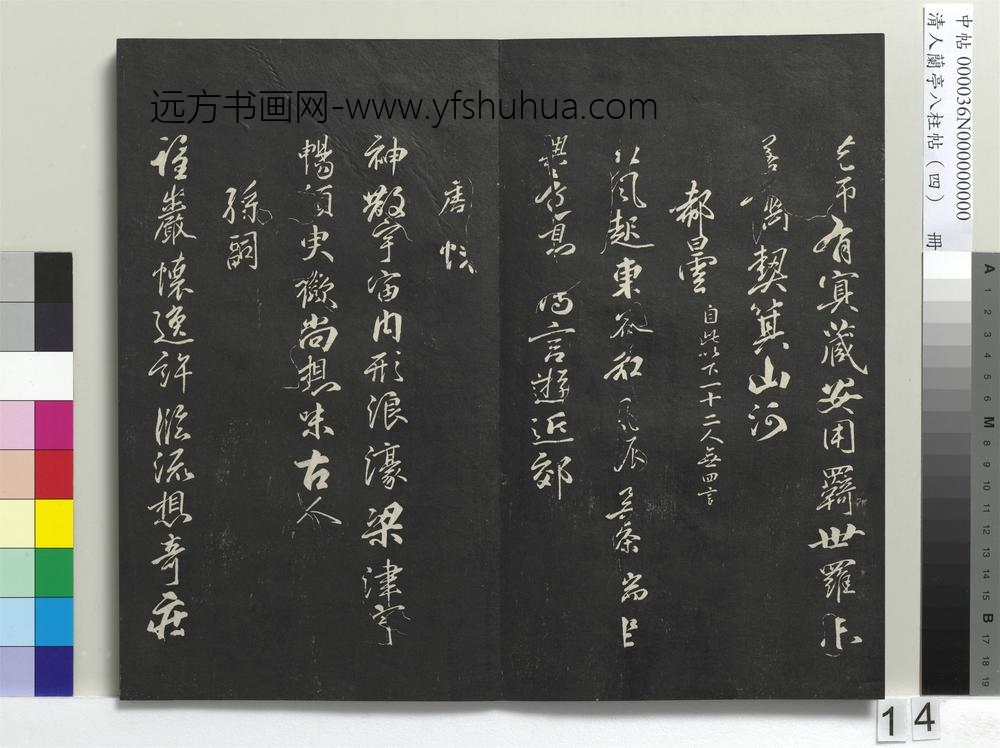 中帖 000036N000000000
清人蘭亭八柱帖(四) 冊
远方书画网-www.yfshuhua.com
有冥藏安用羈世羅
契箕山河
郗曇 自此以下一十二人無四言
風起東谷和條
言遊近郊
神散宇宙內形浪濠梁津寄
暢須臾歡尚想味古人
孫嗣
望巖懷逸許臨流想奇莊
A 1 2 3 4 5 6 M 8 9 10 11 12 13 14 15 B 17 18 19
14